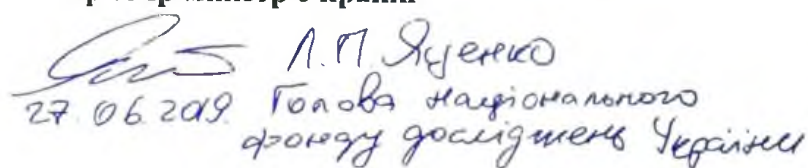 Л.П. Яценко
27.06.2019 Голова Національного
фонду досліджень України